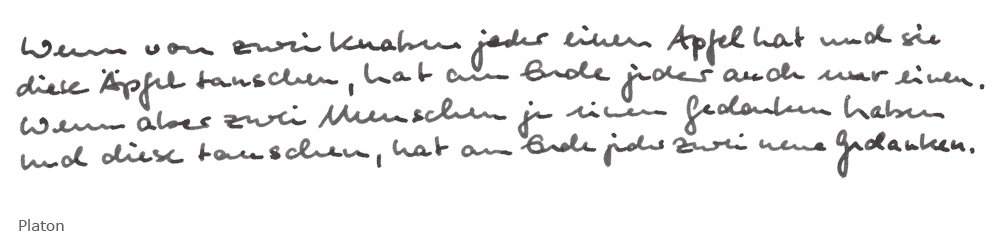 Wenn von zwei Knaben jeder einen Apfel hat und sie
diese Äpfel tauschen, hat am Ende jeder auch nur einen.
Wenn aber zwei Menschen je einen Gedanken haben
und diese tauschen, hat am Ende jeder zwei neue Gedanken.
Platon